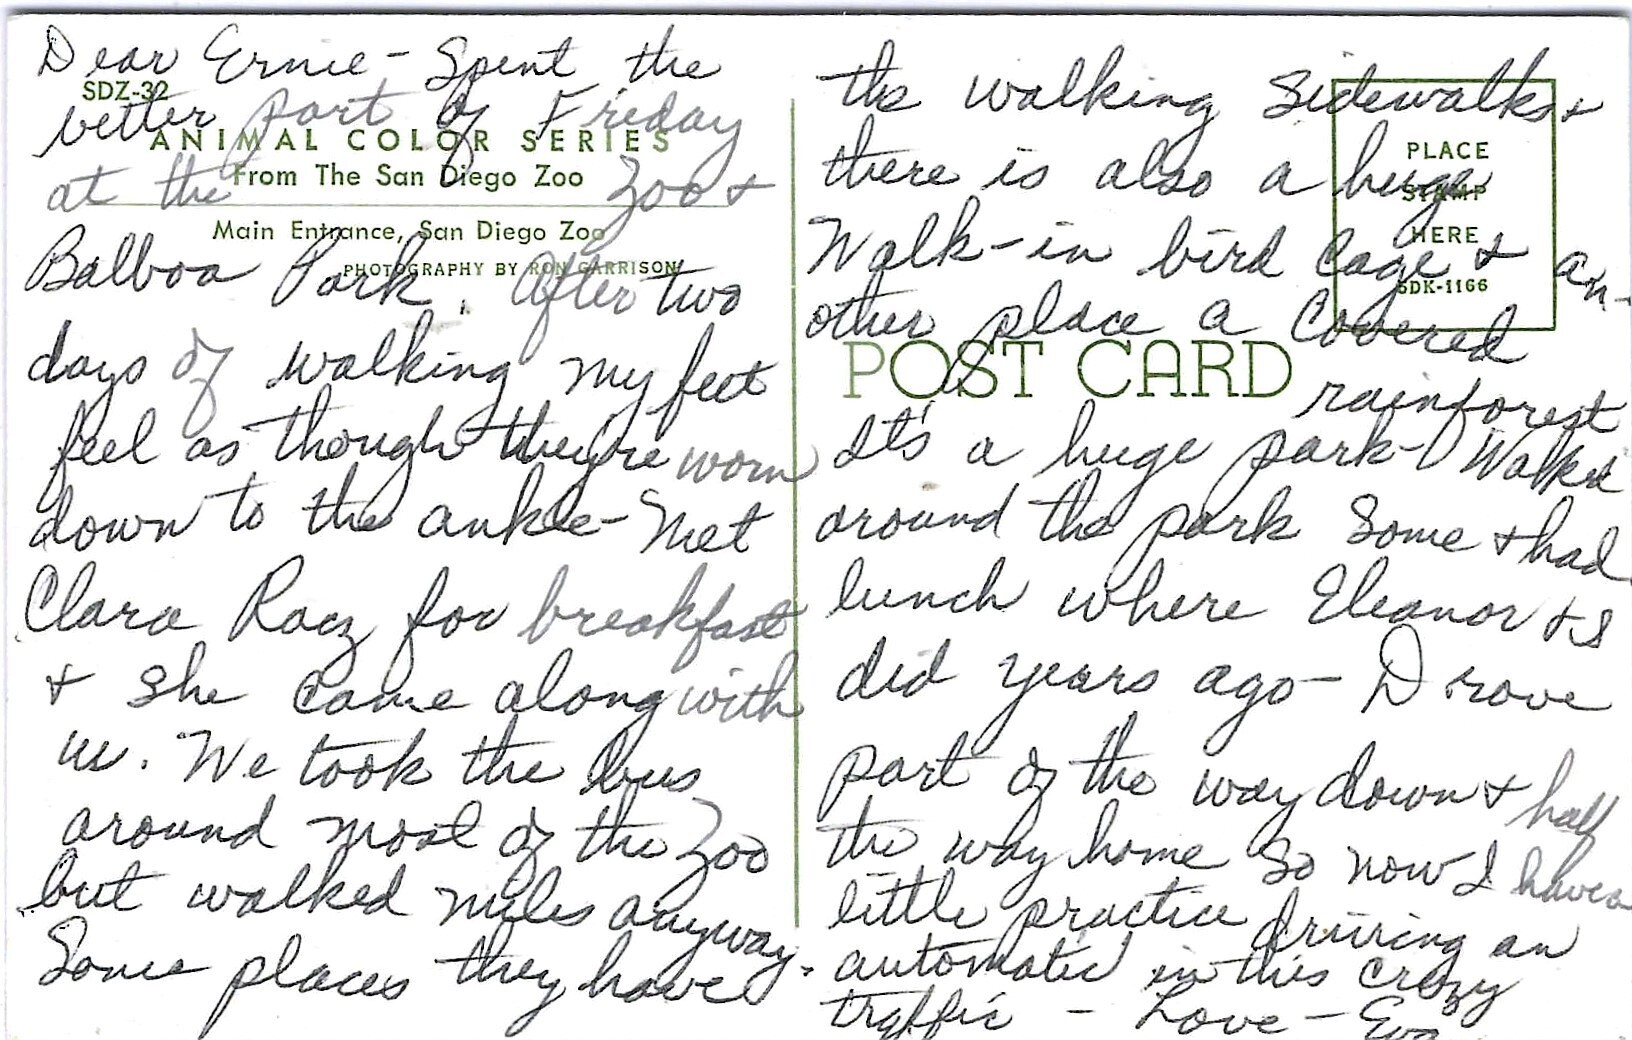 Dear Ernie - Spent the
SDZ-32
better part of Freday
ANIMAL COLOR SERIES
From The San Diego Zoo
at the Zoo +
Main Entrance, San Diego Zoo
PHOTOGRAPHY BY RON GARRISON
Balboa Park. After two
days of walking my feet
feel as though they're worn
down to the ankle - Met
Clara Racz for breakfast
+ she came along with
us. We took the bus
around most of the Zoo
but walked miles anyway.
Some places they have
the walking sidewalks +
there is also a huge
Walk-in bird cage + an-
other place a covered
rainforest
PLACE
STAMP
HERE
SDK-1166
POST CARD
It's a huge park - Walked
around the park some + had
lunch where Eleanor + I
did years ago - Drove
part of the way down + half
the way home so now I have a
little practice driving an
automatic in this crazy
traffic - Love - Eva